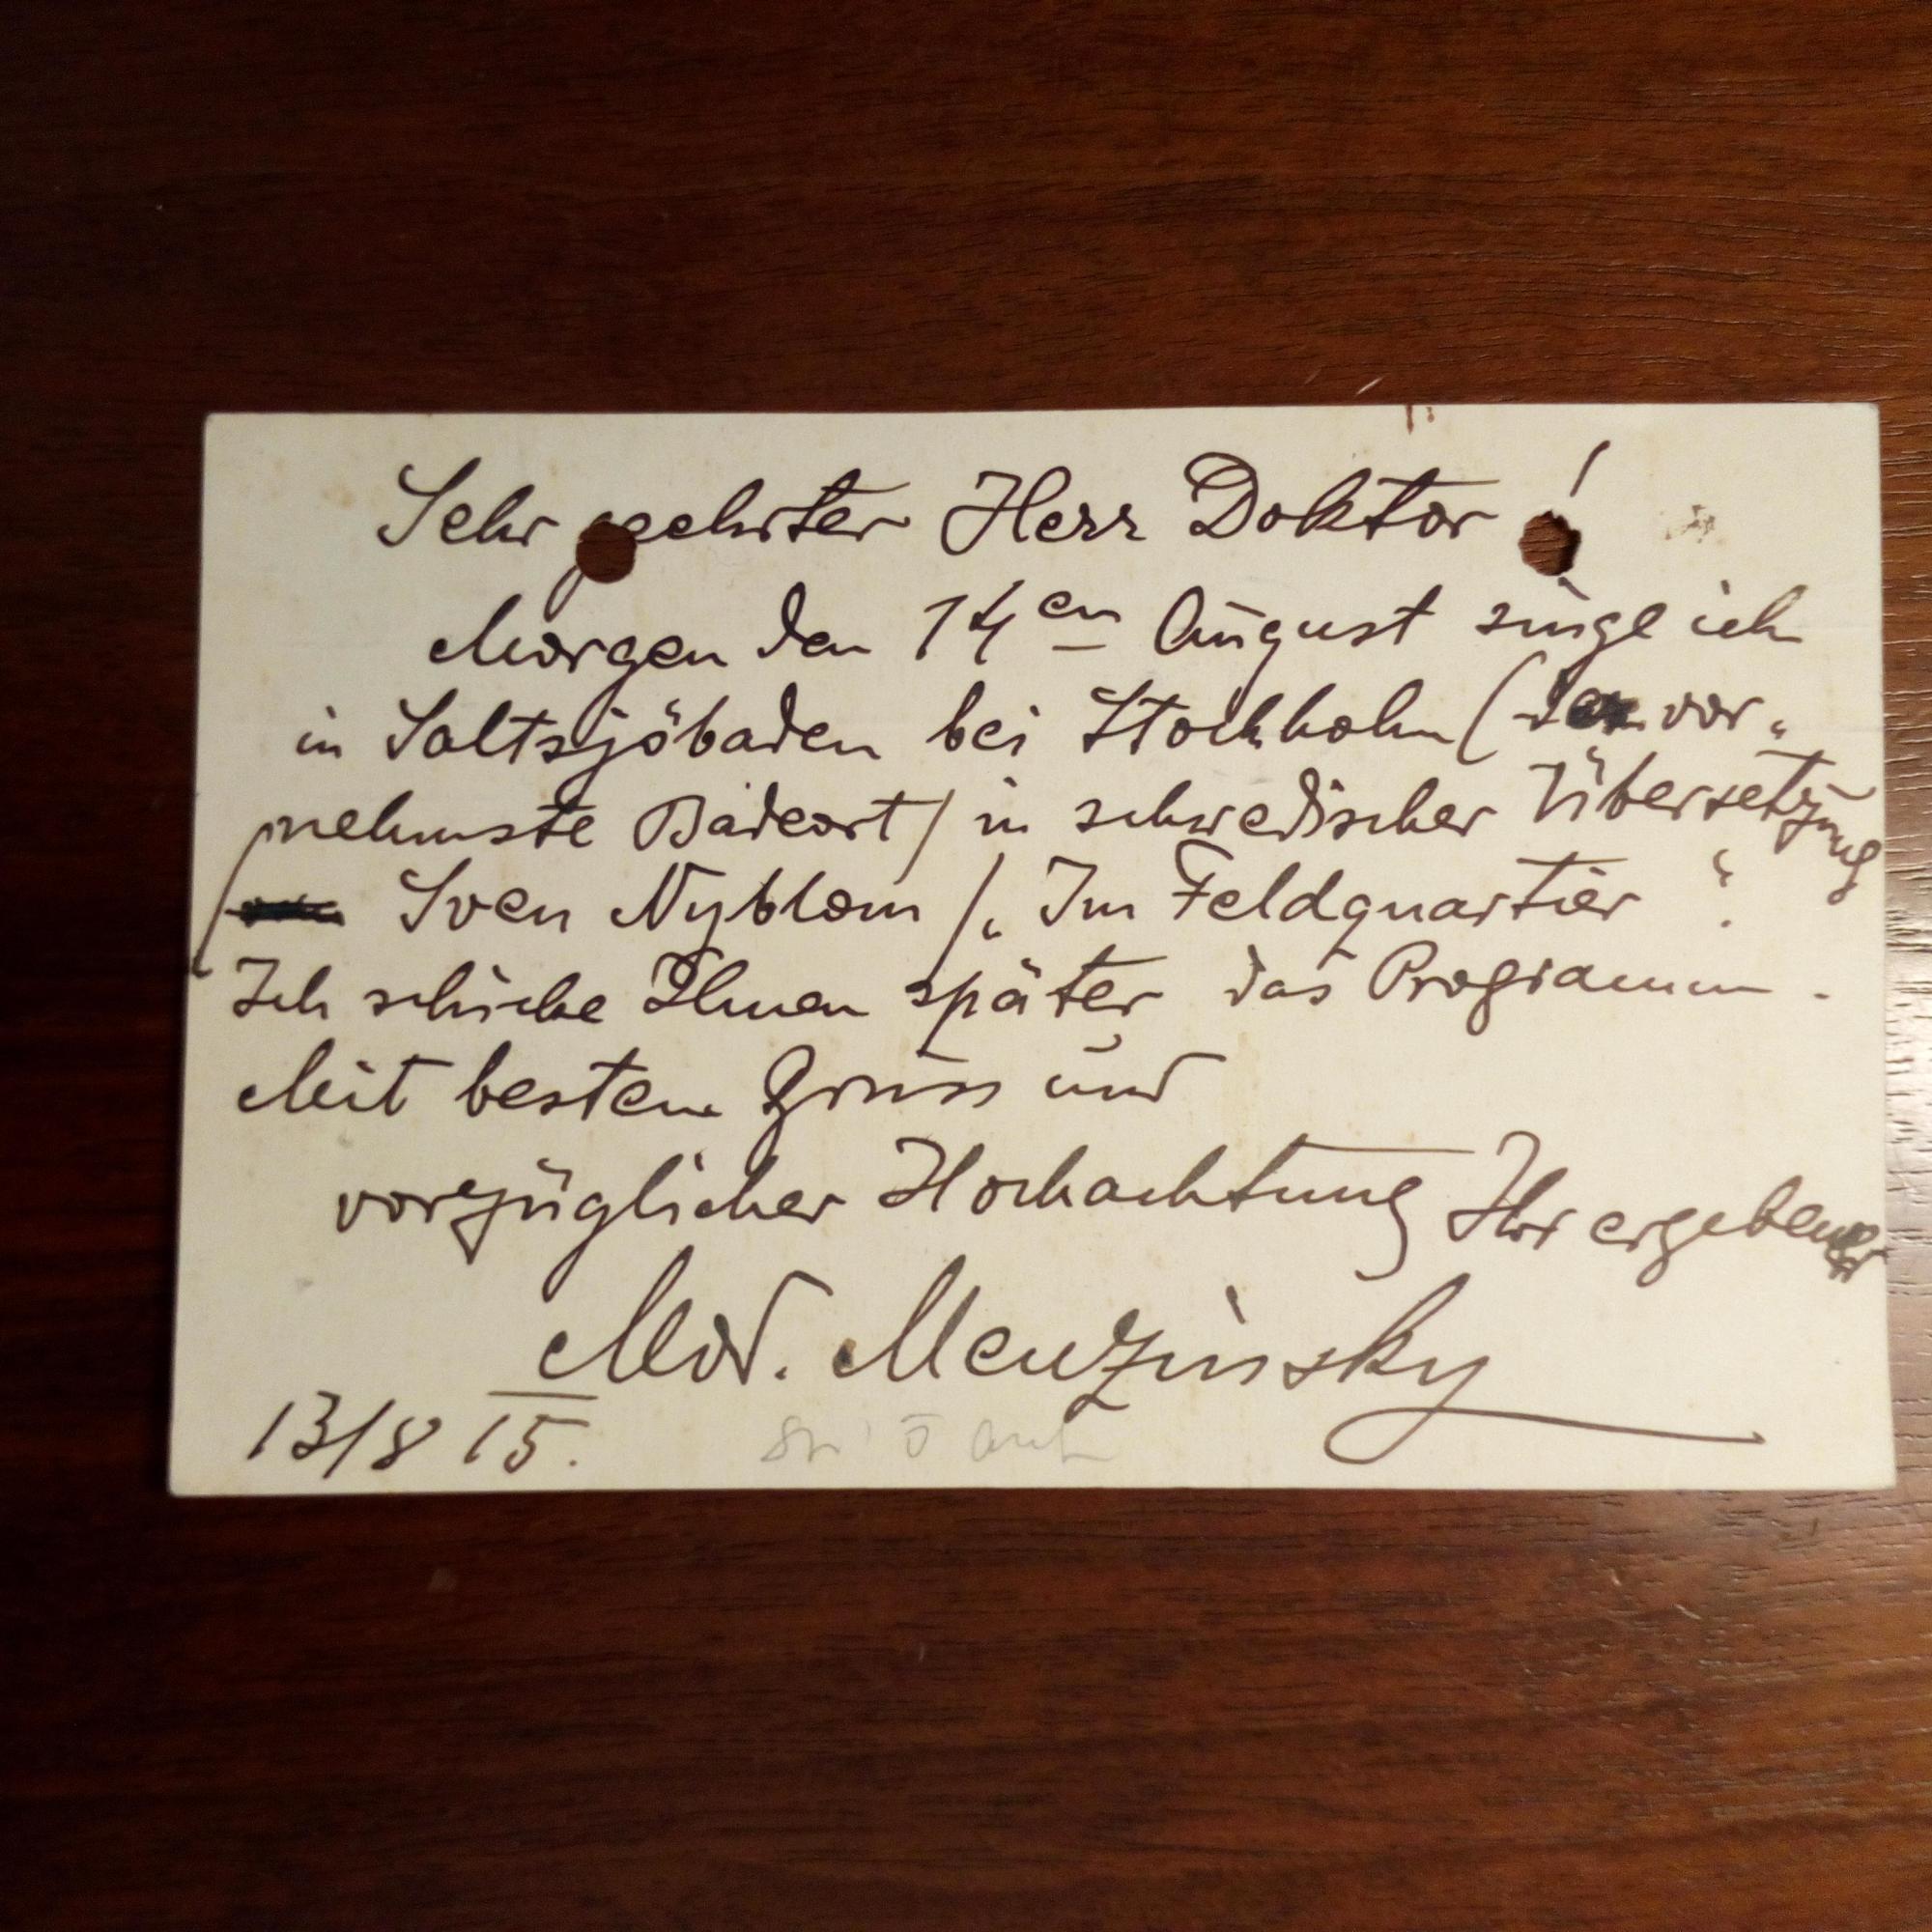 Sehr geehrter Herr Doktor!
Morgen den 14en August singe ich
in Saltsjöbaden bei Stockholm (der vor„
nehmste Badeort) in schwedischer Übersetzung
/ Sven Nyblom /„Im Feldquartier“.
Ich schicke Ihnen später das Programm.
Mit bestem Gruss und
vorzüglicher Hochachtung Ihr ergebener
Mod. Menzinsky
13/8 15.